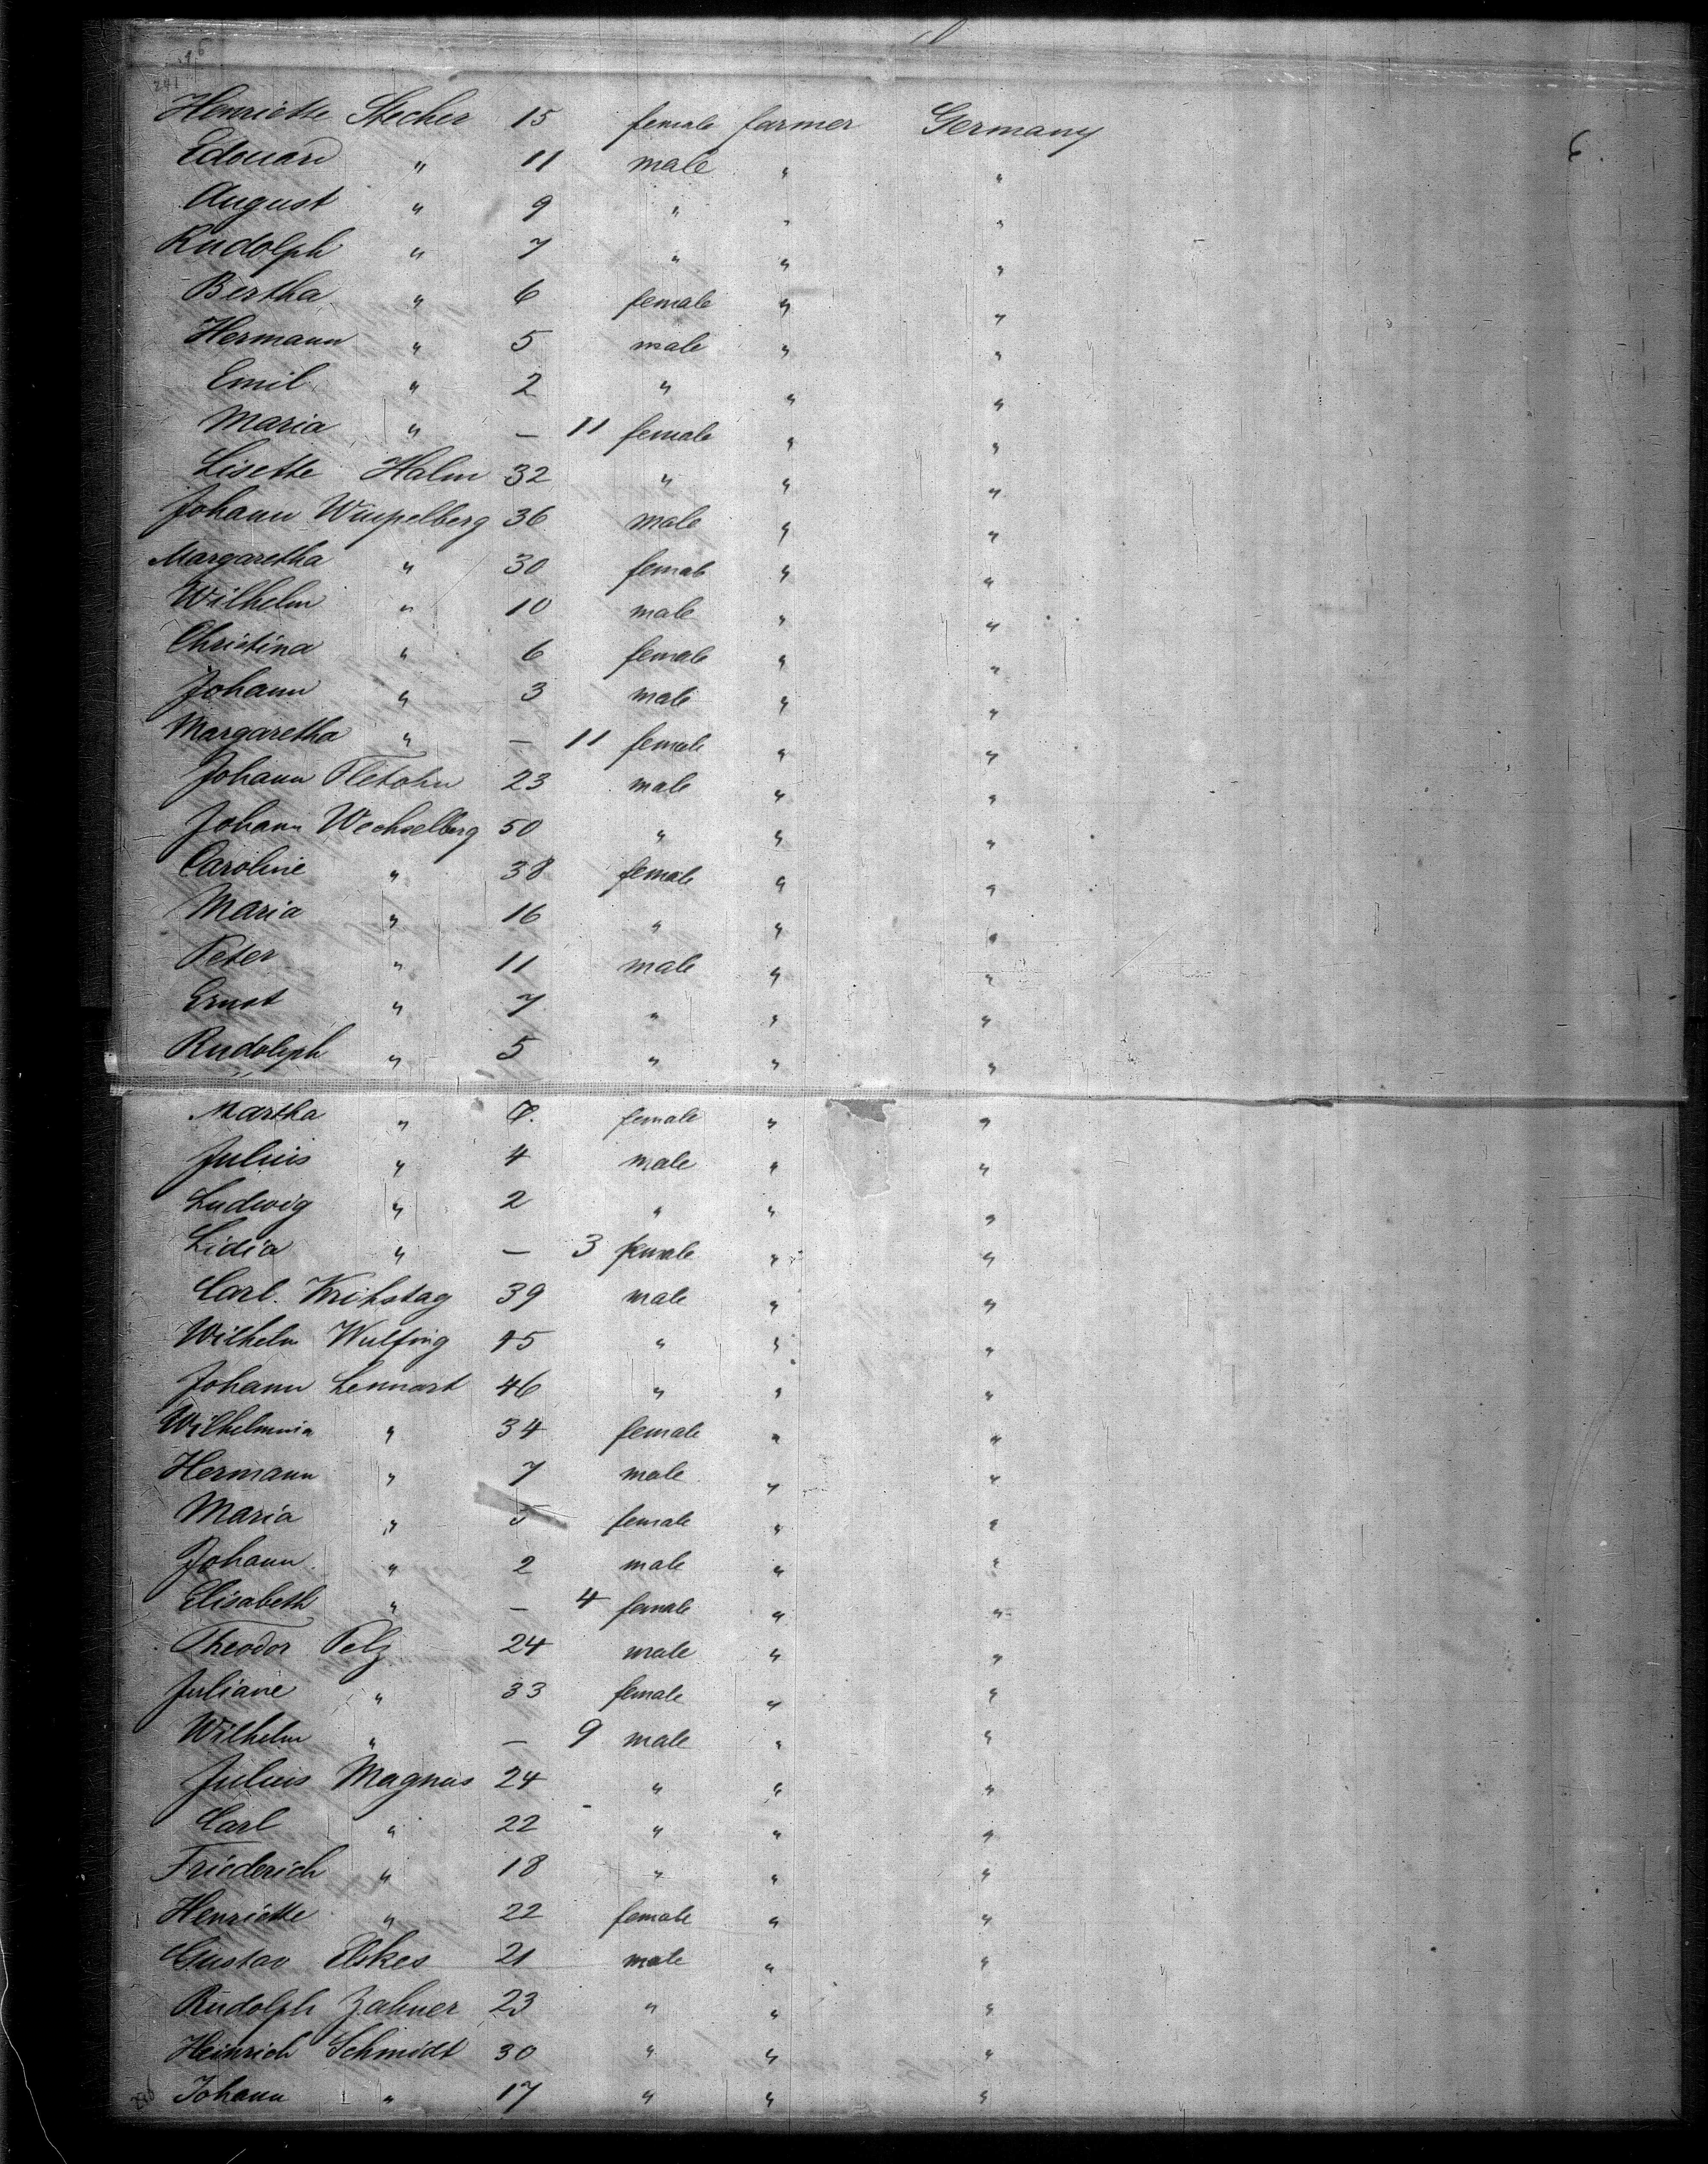 241
Henriette Stecher 15 female farmer Germany
Edouard " 11 male " "
August " 9 " " "
Rudolph " 7 " " "
Bertha " 6 female " "
Hermann " 5 male " "
Emil " 2 " " "
Maria " — 11 female " "
Lisette Halm 32 " " "
Johann Wimpelberg 36 male " "
Margaretha " 30 female " "
Wilhelm " 10 male " "
Christina " 6 female " "
Johann " 3 male " "
Margaretha " — 11 female " "
Johann 23 male " "
Johann Wechselberg 50 " " "
Caroline " 38 female " "
Maria " 16 " " "
Peter " 11 male " "
Ernst " 7 " " "
Rudolph " 5 " " "
Martha " female " "
Julius " 4 male " "
Ludwig " 2 " " "
Lidia " — 3 female " "
Carl Kritstag 39 male " "
Wilhelm Wulfing 45 " " "
Johann Lennart 46 " " "
Wilhelmina " 34 female " "
Hermann " 7 male " "
Maria " 5 female " "
Johann " 2 male " "
Elisabeth " — 4 female " "
Theodor Pelz 24 male " "
Juliane " 33 female " "
Wilhelm " — 9 male " "
Julius Magnus 24 " " "
Carl " 22 " " "
Friederich " 18 " " "
Henriette " 22 female " "
Gustav Elskes 21 male " "
Rudolph Zahner 23 " " "
Heinrich Schmidt 30 " " "
Johann " 17 " " "